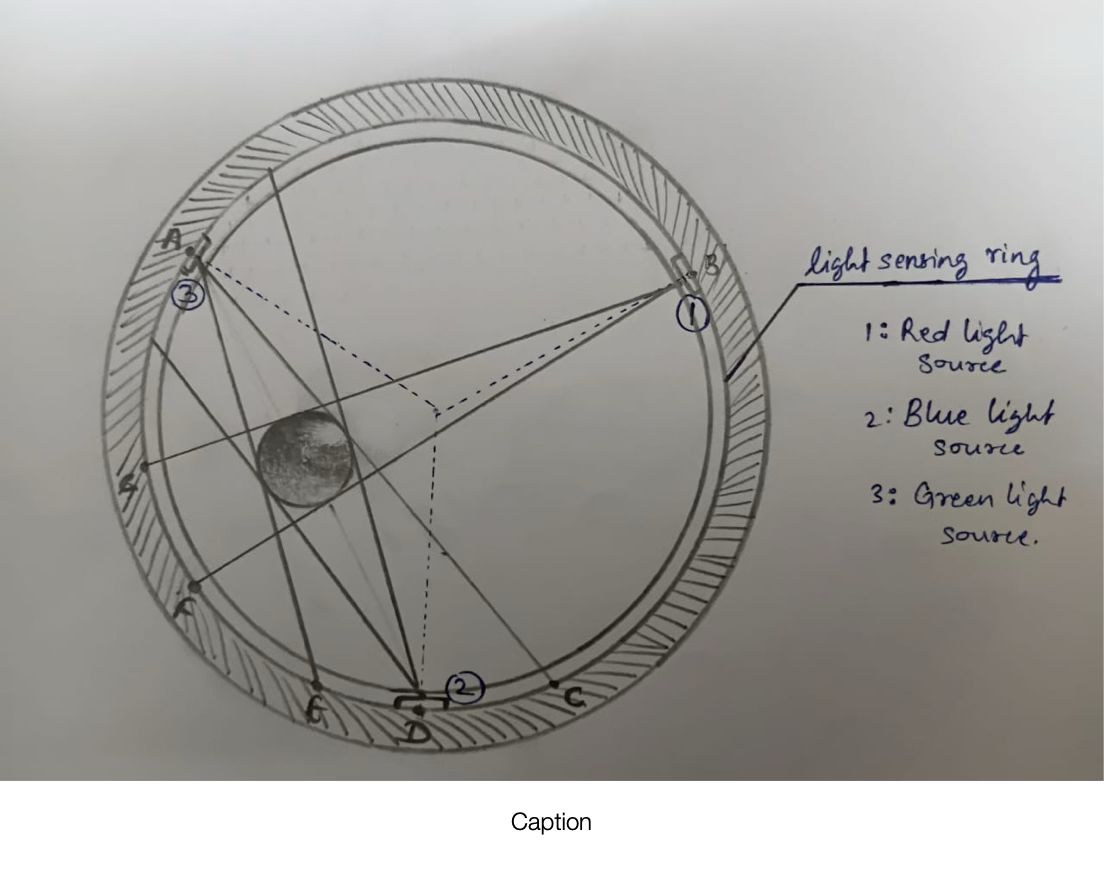 A
B
3
1
light sensing ring
1: Red light
source
2: Blue light
source
3: Green light
source.
G
F
E
2
D
C
Caption